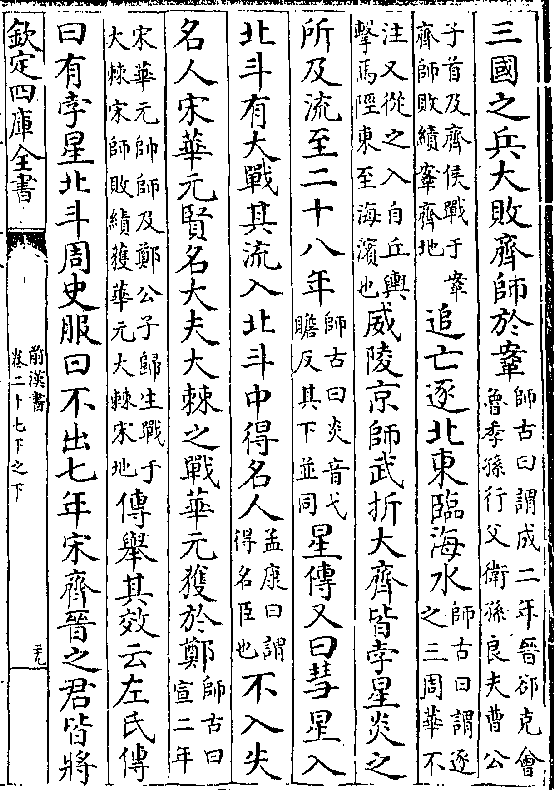 三國之兵大敗齊師於鞌師古曰謂成二年晉郤克會魯季孫行父衛孫良夫曹公
子首及齊侯戰于鞌齊師敗績鞌齊地追亡逐北東臨海水師古曰謂逐之三周華不
注又從之入自丘輿擊馬陘東至海濱也威陵京師武折大齊皆孛星炎之
所及流至二十八年師古曰炎音弋贍反其下並同星傳又曰彗星入
北斗有大戰其流入北斗中得名人孟康曰謂得名臣也不入失
名人宋華元賢名大夫大棘之戰華元獲於鄭師古曰宣二年
宋華元帥師及鄭公子歸生戰于大棘宋師敗績獲華元大棘宋地傳舉其效云左氏傳
曰有孛星北斗周史服曰不出七年宋齊晉之君皆將
欽定四庫全書
前漢書
卷二十七下之下
元